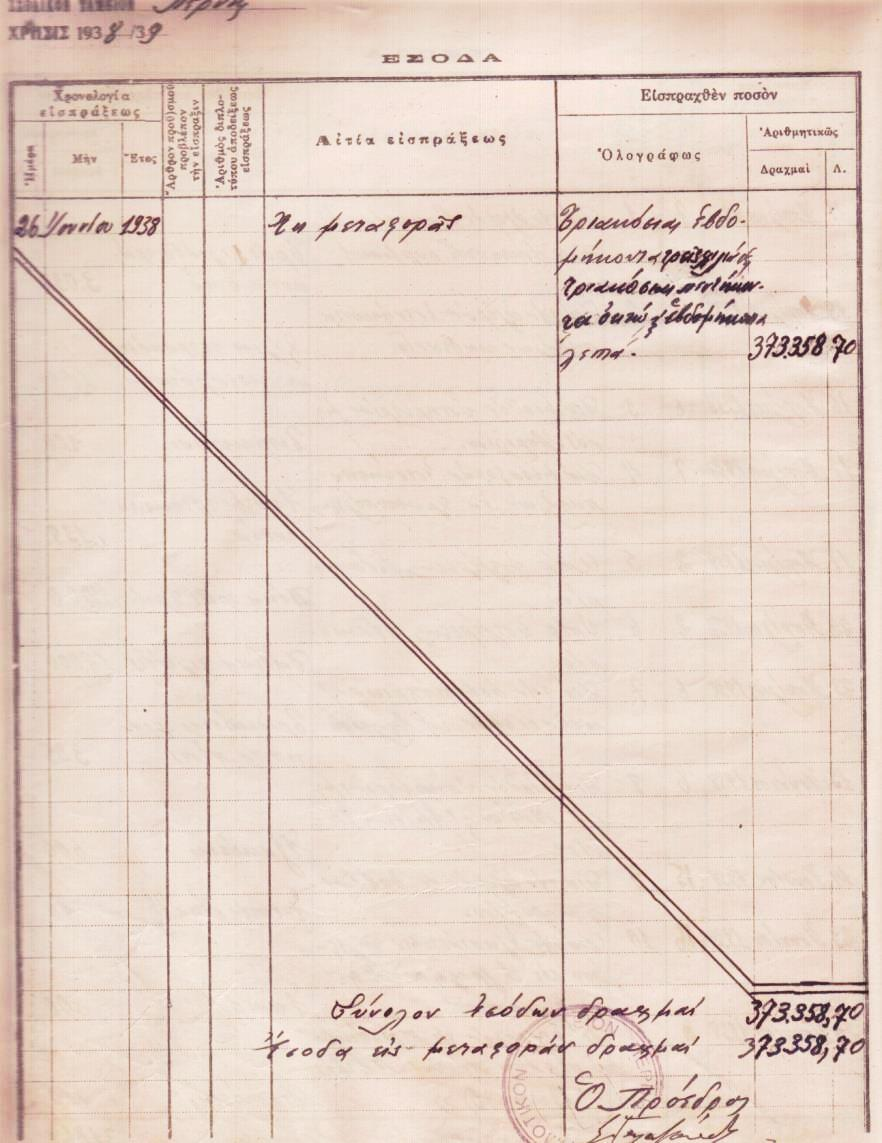 ΧΡΗΣΙΣ 1938/39
ΕΣΟΔΑ
Χρονολογία
εἰσπράξεως
Ἡμέρα
Μὴν
Ἔτος
Ἄρθρον προϋ/σμοῦ
προβλέπον
τὴν εἴσπραξιν
Ἀριθμὸς διπλο-
τύπου ἀποδείξεως
εἰσπράξεως
Αἰτία εἰσπράξεως
Εἰσπραχθὲν ποσὸν
Ὁλογράφως
Ἀριθμητικῶς
Δραχμαὶ
Λ.
26 Ἰουνίου 1938
Ἐκ μεταφορᾶς
Τριακόσιαι ἑβδο-
μήκοντα τρεῖς χιλιάδες
τριακόσιαι πεντήκον-
τα ὀκτώ & ἑβδομήκοντα
λεπτά.
373.358 70
Σύνολον ἐσόδων δραχμαί 373.358,70
Ἔσοδα εἰς μεταφοράν δραχμαί 373.358,70
Ὁ Πρόεδρος